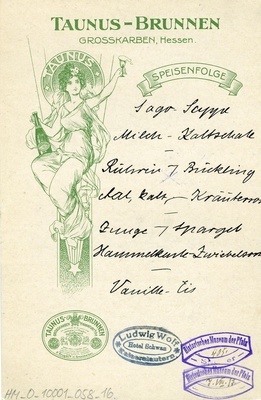 TAUNUS-BRUNNEN
GROSSKARBEN, Hessen.
TAUNUS
SPEISENFOLGE
Sago Suppe
Milch-Kaltschale
Rührei / Bückling
Aal, kalt / Kräuter
Zunge / Spargel
Hammelkeule
Vanille-Eis
TAUNUS-BRUNNEN
Ludwig Wolf
Hotel Schwan
Kaiserslautern
Historisches Museum der Pfalz
Historisches Museum der Pfalz
HM_0_10001_058_16